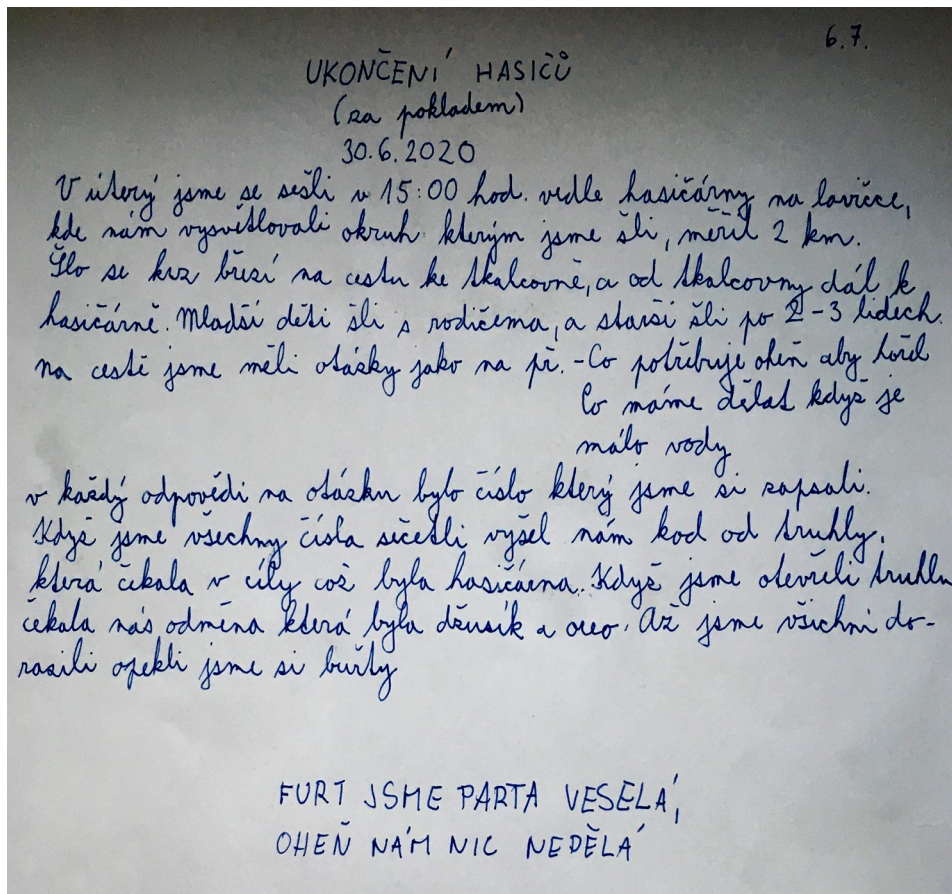 6.7.
UKONČENÍ HASIČŮ
(za pokladem)
30.6.2020
V úterý jsme se sešli v 15:00 hod. vedle hasičárny na lavičce,
kde nám vysvětlovali okruh kterým jsme šli, měřil 2 km.
Šlo se krz březí na cestu ke Skalcovně, a od Skalcovny dál k
hasičárně. Mladší děti šli s rodičema, a starší šli po 2-3 lidech.
na cestě jsme měli otázky jako na př. - Co potřebuje oheň aby hořel
Co máme dělat když je
málo vody
v každý odpovědi na otázku bylo číslo který jsme si zapsali.
Když jsme všechny čísla sečetli vyšel nám kod od truhly,
která čekala v cíly což byla hasičárna. Když jsme otevřeli truhlu
čekala nás odměna která byla džusík a oreo. Až jsme všichni do-
razili opekli jsme si buřty
FURT JSME PARTA VESELÁ,
OHEŇ NÁM NIC NEDĚLÁ